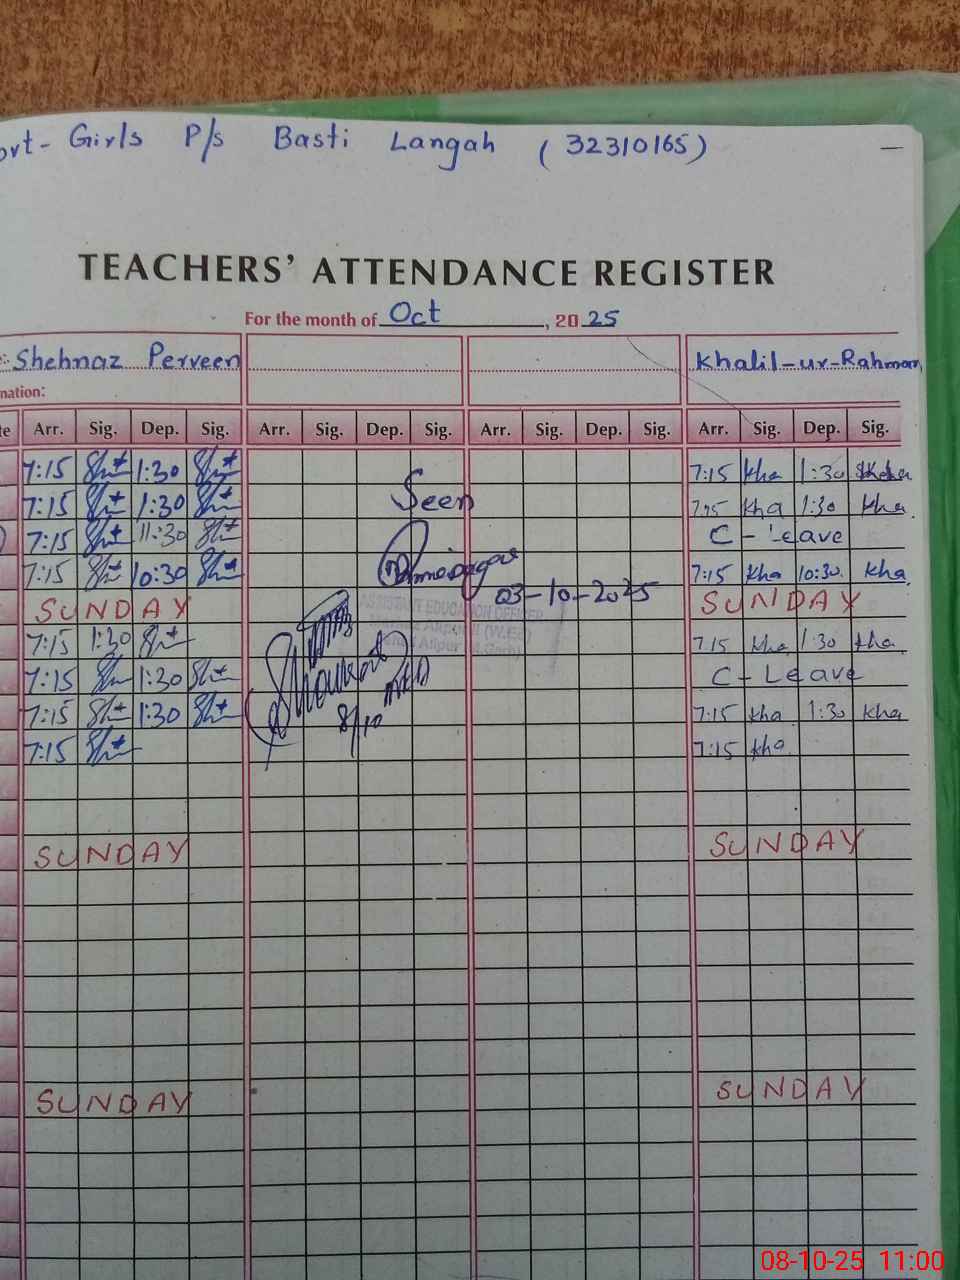 ovt- Girls P/s Basti Langah (32310165)
TEACHERS' ATTENDANCE REGISTER
For the month of Oct, 20 25
e:- Shehnaz Perveen Khalil-ur-Rahman
nation:
te Arr. Sig. Dep. Sig. Arr. Sig. Dep. Sig. Arr. Sig. Dep. Sig. Arr. Sig. Dep. Sig.
7:15 1:30 7:15 kha 1:30 kha
7:15 1:30 Seen 7:15 kha 1:30 kha
7:15 11:30 C - Leave
7:15 10:30 7:15 kha 10:30 kha
03-10-2025
SUNDAY ASSISTANT EDUCATION OFFICER SUNDAY
7:15 1:30 7:15 kha 1:30 kha
7:15 1:30 Shoukat C - Leave
7:15 1:30 8/10 7:15 kha 1:30 kha
7:15 7:15 kha
SUNDAY SUNDAY
SUNDAY SUNDAY
08-10-25 11:00